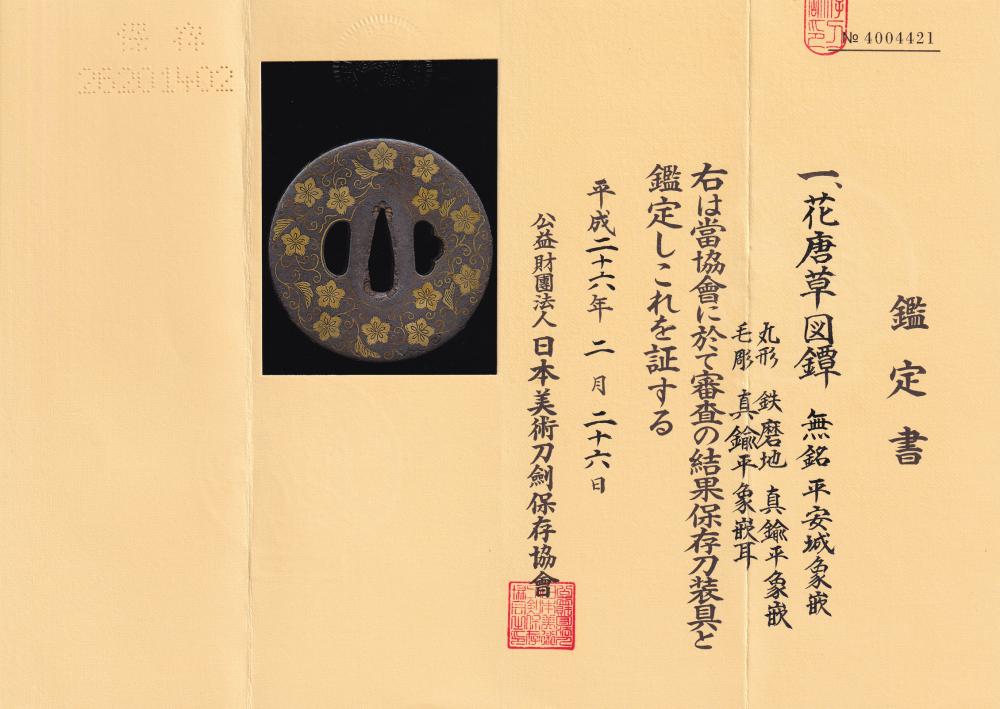 № 4004421
鑑定書
一、花唐草図鐔 無銘 平安城象嵌
丸形 鉄磨地 真鍮平象嵌
毛彫 真鍮平象嵌耳
右は當協會に於て審査の結果保存刀装具と
鑑定しこれを証する
平成二十六年 二月 二十六日
公益財團法人 日本美術刀劍保存協會
保存
26201402